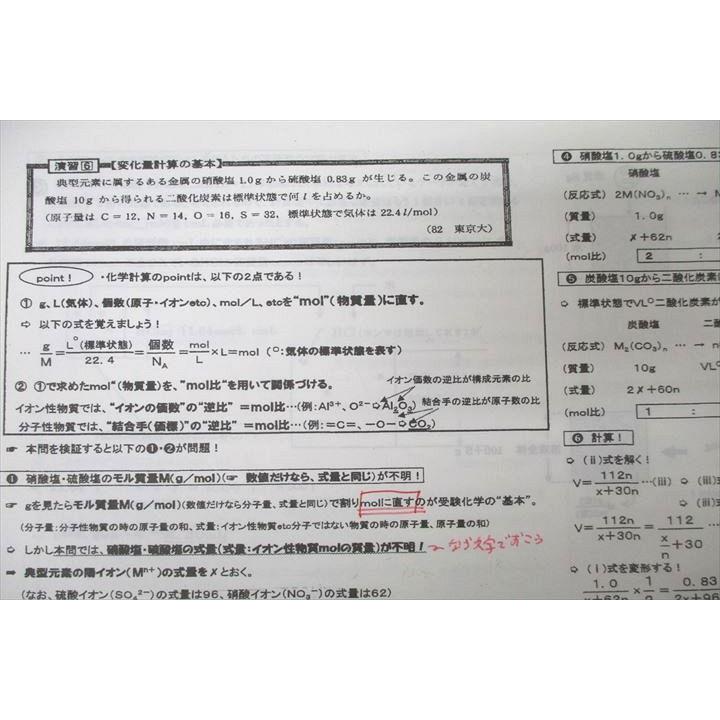 演習6 【変化量計算の基本】
典型元素に属するある金属の硝酸塩 1.0g から硫酸塩 0.83g が生じる。この金属の炭
酸塩 10g から得られる二酸化炭素は標準状態で何 l を占めるか。
(原子量は C = 12、N = 14、O = 16、S = 32、標準状態で気体は 22.4 l/mol)
(82 東京大)
point! ・化学計算のpointは、以下の2点である!
① g、L(気体)、個数(原子・イオンetc)、mol/L、etcを"mol"(物質量)に直す。
⇨ 以下の式を覚えましょう!
… g/M = L○(標準状態)/22.4 = 個数/NA = mol/L × L = mol (○:気体の標準状態を表す)
② ①で求めたmol"(物質量)を、"mol比"を用いて関係づける。
イオン価数の逆比が構成元素の比
イオン性物質では、"イオンの価数"の"逆比" =mol比…(例:Al³⁺、O²⁻⇨Al₂O₃)
結合手の逆比が原子数の比
分子性物質では、"結合手(価標)"の"逆比" =mol比…(例:=C=、−O−⇨CO₂)
☞ 本問を検証すると以下の❶・❷が問題!
❶ 硝酸塩・硫酸塩のモル質量M(g/mol)(☞ 数値だけなら、式量と同じ)が不明!
☞ gを見たらモル質量M(g/mol)(数値だけなら分子量、式量と同じ)で割りmolに直すのが受験化学の"基本"。
(分子量:分子性物質の時の原子量の和、式量:イオン性物質etc分子ではない物質の時の原子量、原子量の和)
⇨ しかし本問では、硝酸塩・硫酸塩の式量(式量:イオン性物質molの質量)が不明!
➡ 典型元素の陽イオン(Mⁿ⁺)の式量をxとおく。
(なお、硫酸イオン(SO₄²⁻)の式量は96、硝酸イオン(NO₃⁻)の式量は62)
❹ 硝酸塩1.0gから硫酸塩0.8
硝酸塩
(反応式) 2M(NO₃)ₙ … →
(質量) 1.0g
(式量) x+62n
(mol比) 2 :
❺ 炭酸塩10gから二酸化炭素に
⇨ 標準状態でVL○二酸化炭素が
炭酸塩 二
(反応式) M₂(CO₃)ₙ … → n
(質量) 10g VL
(式量) 2x+60n
(mol比) 1 :
❻ 計算!
⇨ (ii)式を解く!
V= 112n/x+30n …(iii) ⇨ (iii)
⇨ (iii)
V= 112n/x+30n = 112/(x/n+30)
⇨ (i)式を変形する!
1.0/x+62n × 1/2 = 0.83/2x+96n